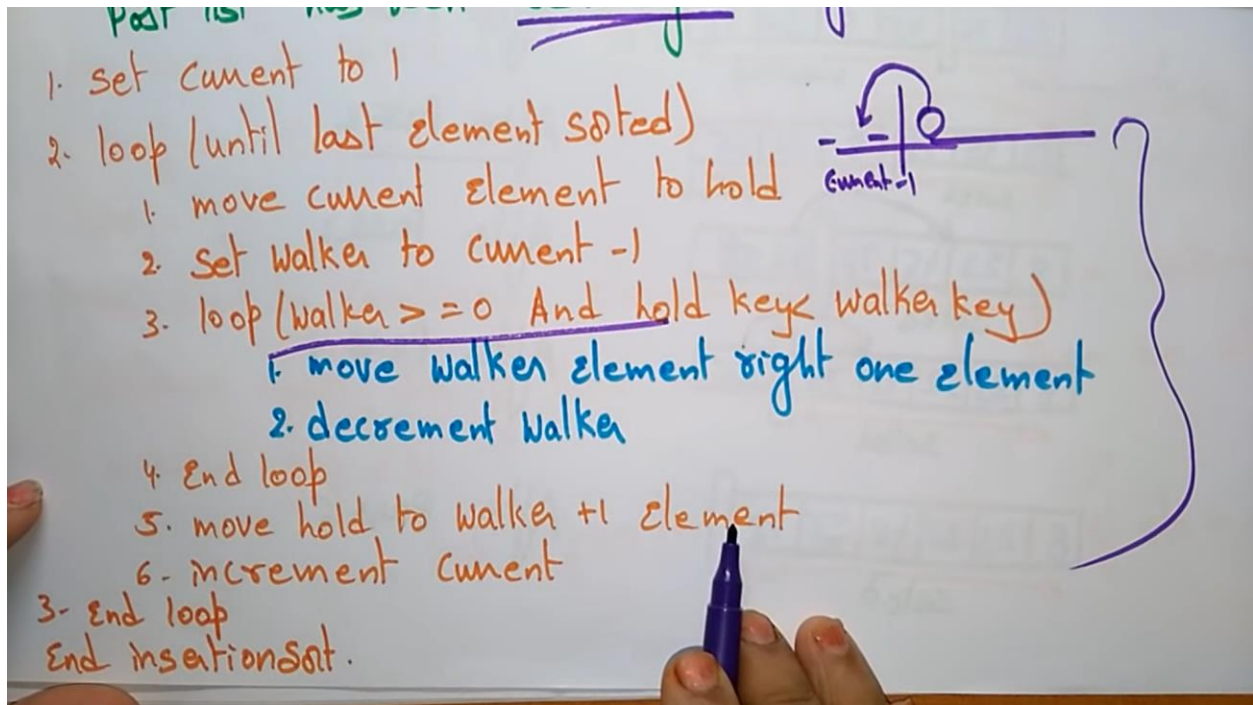 Post list has been
1. set current to 1
2. loop (until last element sorted)
1. move current element to hold
2. set walker to current -1
3. loop (walker > = 0 And hold key < walker key)
1. move walker element right one element
2. decrement walker
4. End loop
5. move hold to walker +1 element
6 - increment current
3- End loop
End insertionsort.
current -1